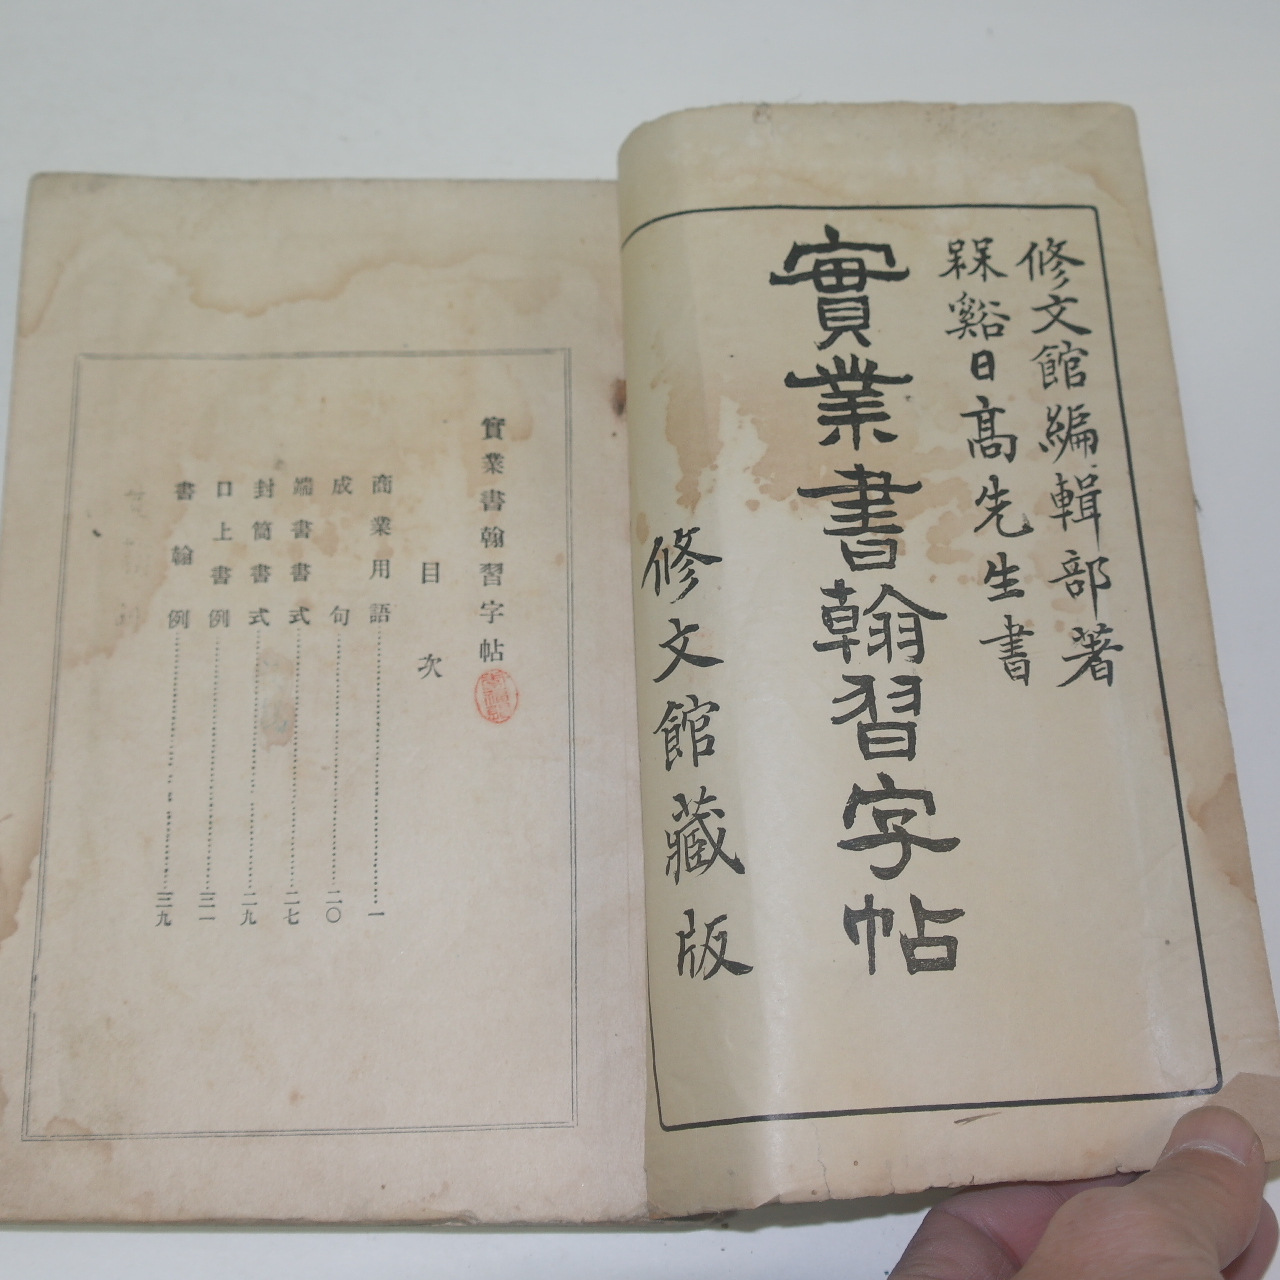 修文館編輯部著
槑谿日高先生書
實業書翰習字帖
修文館藏版
實業書翰習字帖
目次
商業用語………一
成句………二〇
端書書式………二七
封筒書式………二九
口上書例………三一
書翰例………三九